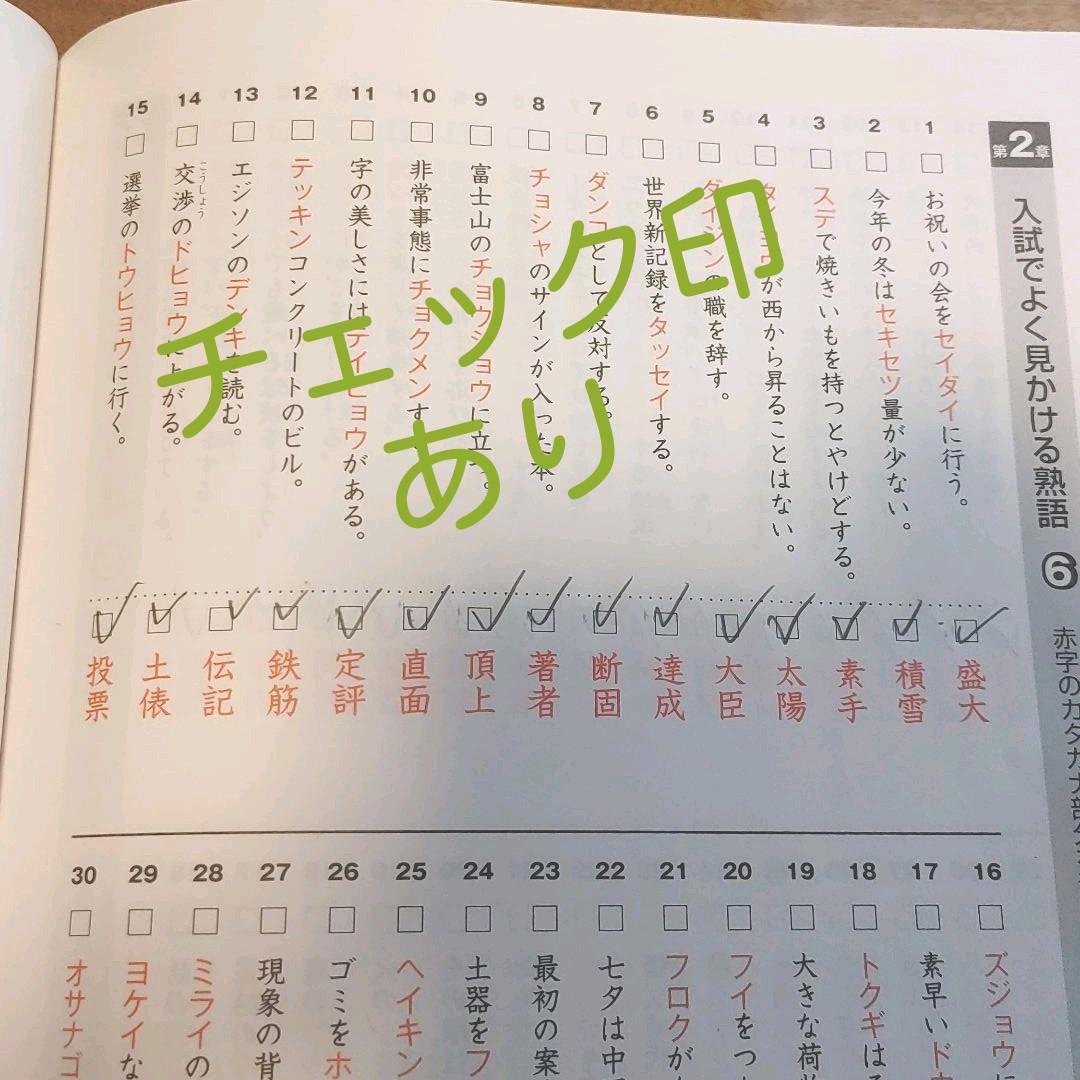 第2章 入試でよく見かける熟語 6
赤字のカタカナ部分
1 お祝いの会をセイダイに行う。
2 今年の冬はセキセツ量が少ない。
3 スデで焼きいもを持つとやけどする。
4 タイヨウが西から昇ることはない。
5 ダイジンの職を辞す。
6 世界新記録をタッセイする。
7 ダンコとして反対する。
8 チョシャのサインが入った本。
9 富士山のチョウジョウに立つ。
10 非常事態にチョクメンす
11 字の美しさにはテイヒョウがある。
12 テッキンコンクリートのビル。
13 エジソンのデンキを読む。
14 交渉のドヒョウに上がる。
こうしょう
15 選挙のトウヒョウに行く。
チェック印
あり
盛大
積雪
素手
太陽
大臣
達成
断固
著者
頂上
直面
定評
鉄筋
伝記
土俵
投票
16 ズジョウに
17 素早いド
18 トクギは
19 大きな荷
20 フイをつ
21 フロクが
22 七夕は中
23 最初の案
24 土器をフ
25 ヘイキン
26 ゴミをホ
27 現象の背
28 ミライの
29 ヨケイな
30 オサナゴ